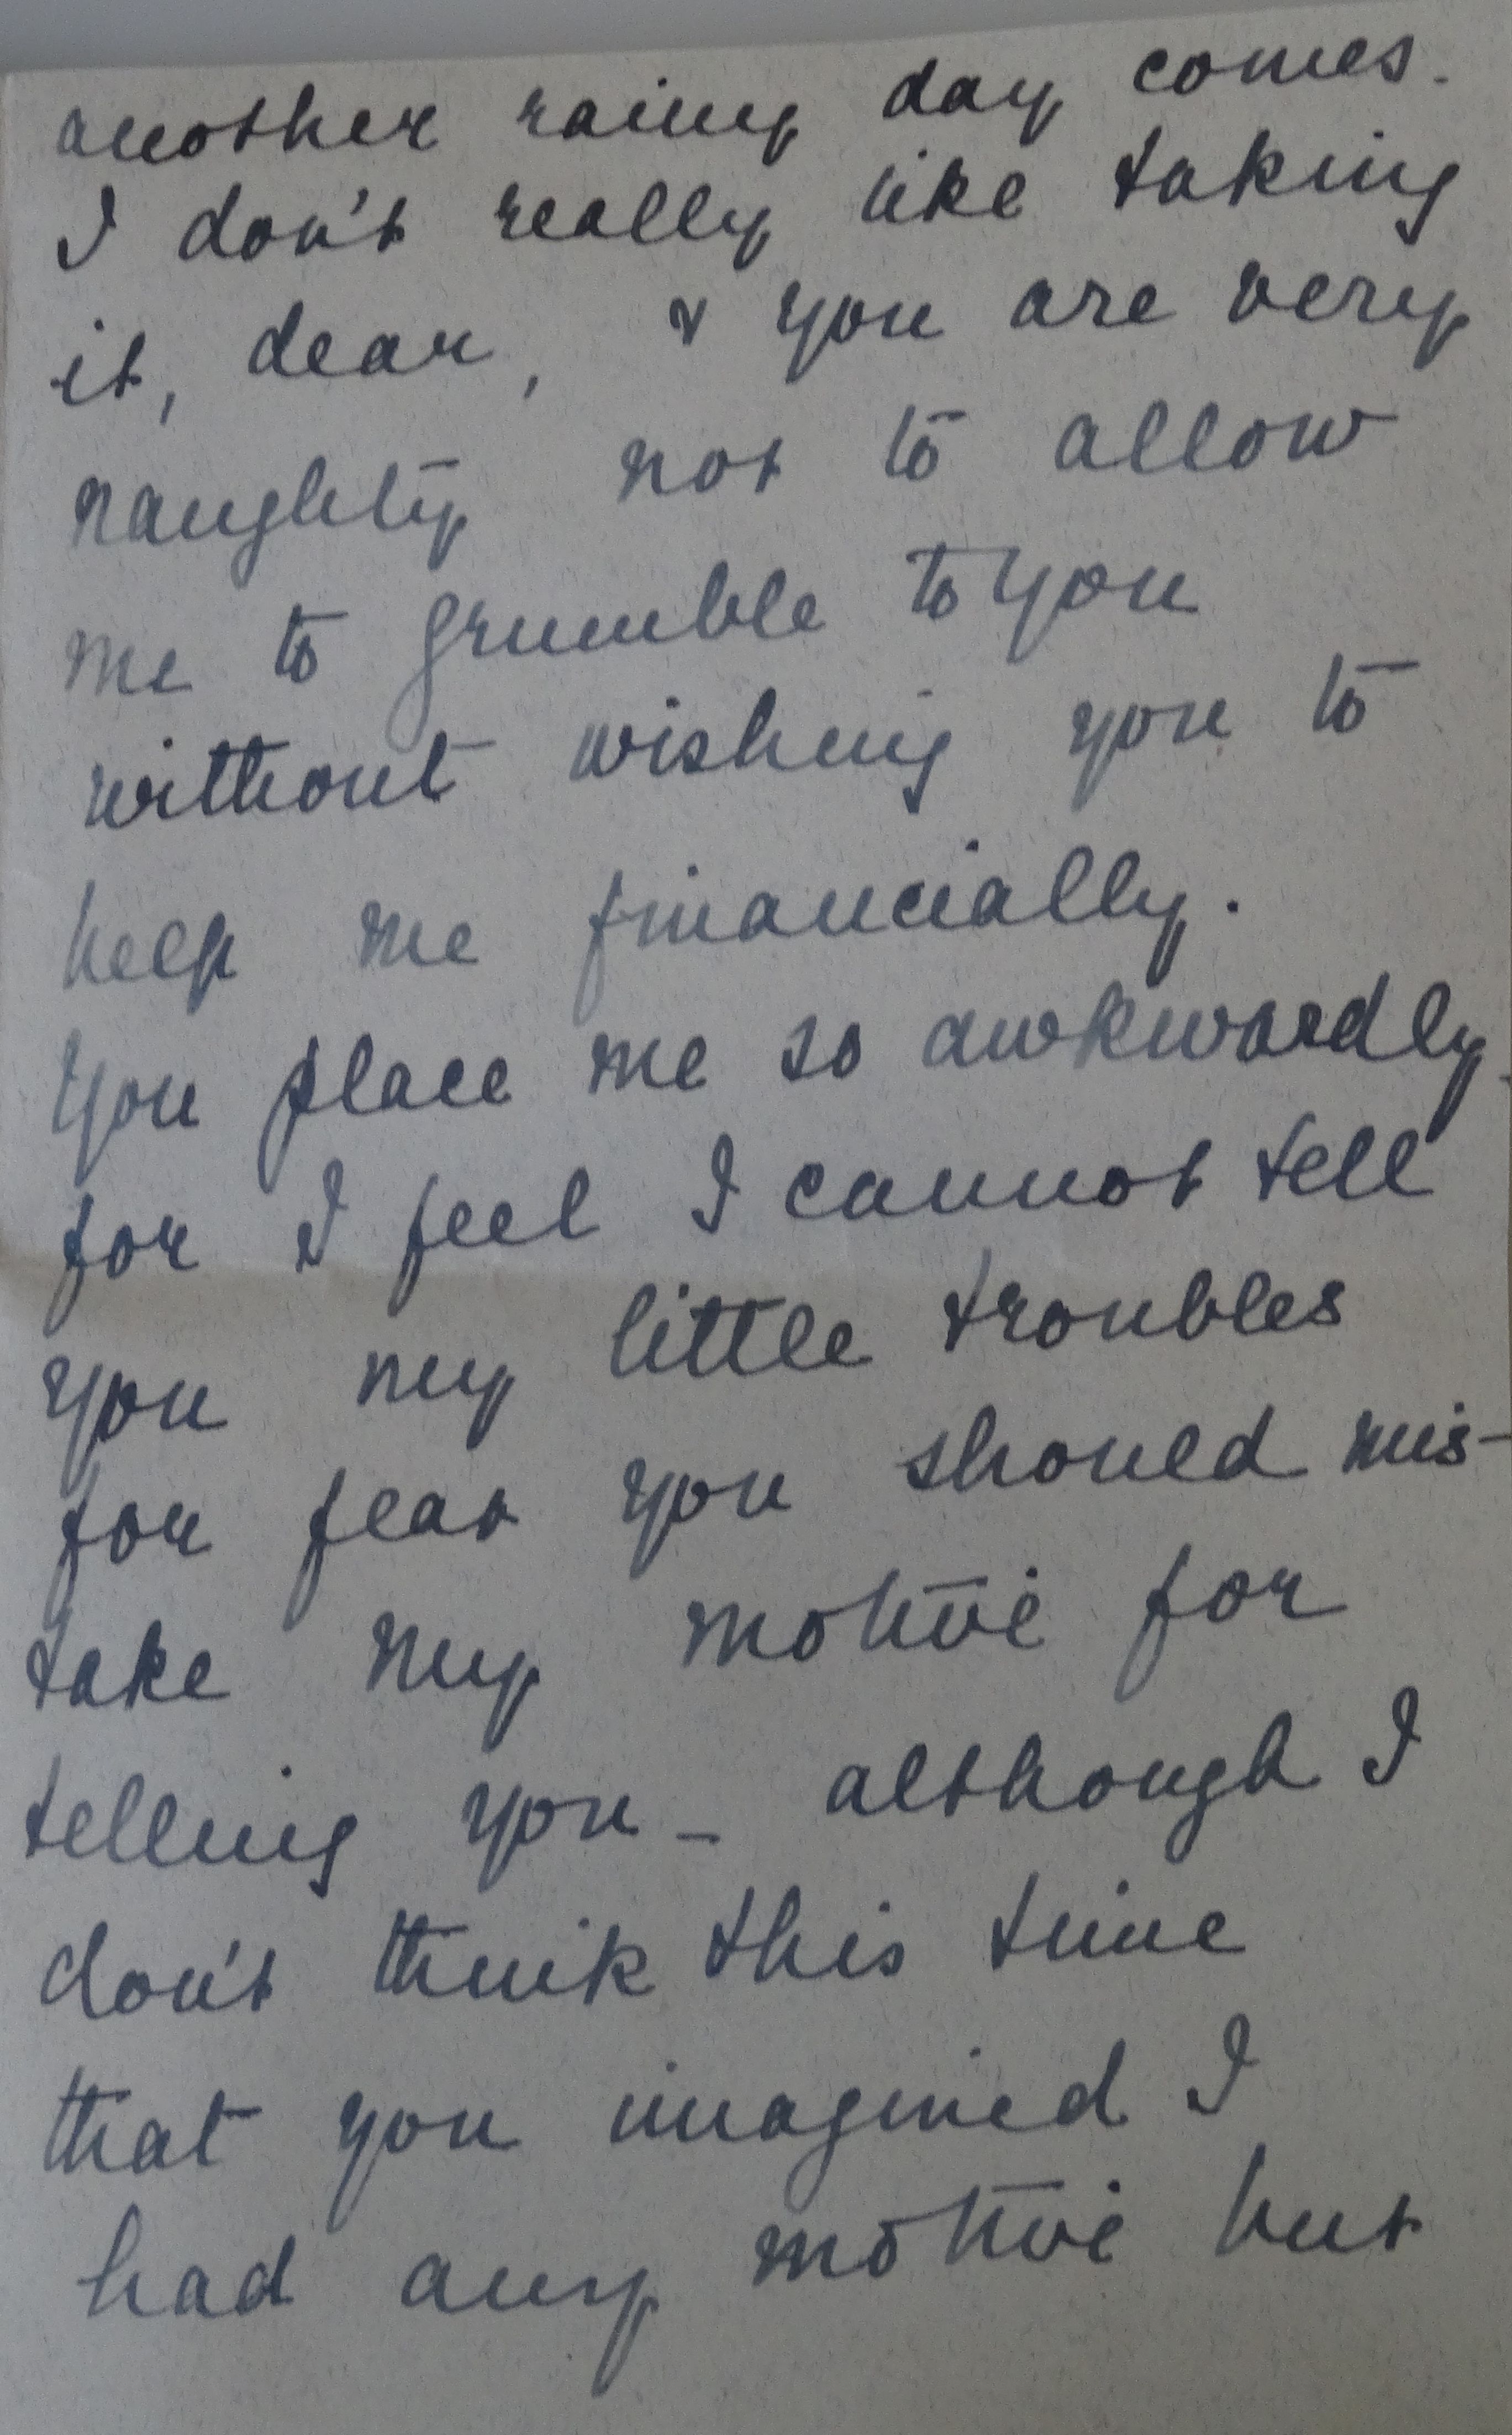 another rainy day comes.
I don't really like taking
it, dear, & you are very
naughty not to allow
me to grumble to you
without wishing you to
help me financially.
You place me so awkwardly
for I feel I cannot tell
you my little troubles
for fear you should mis-
take my motive for
telling you - although I
don't think this time
that you imagined I
had any motive but